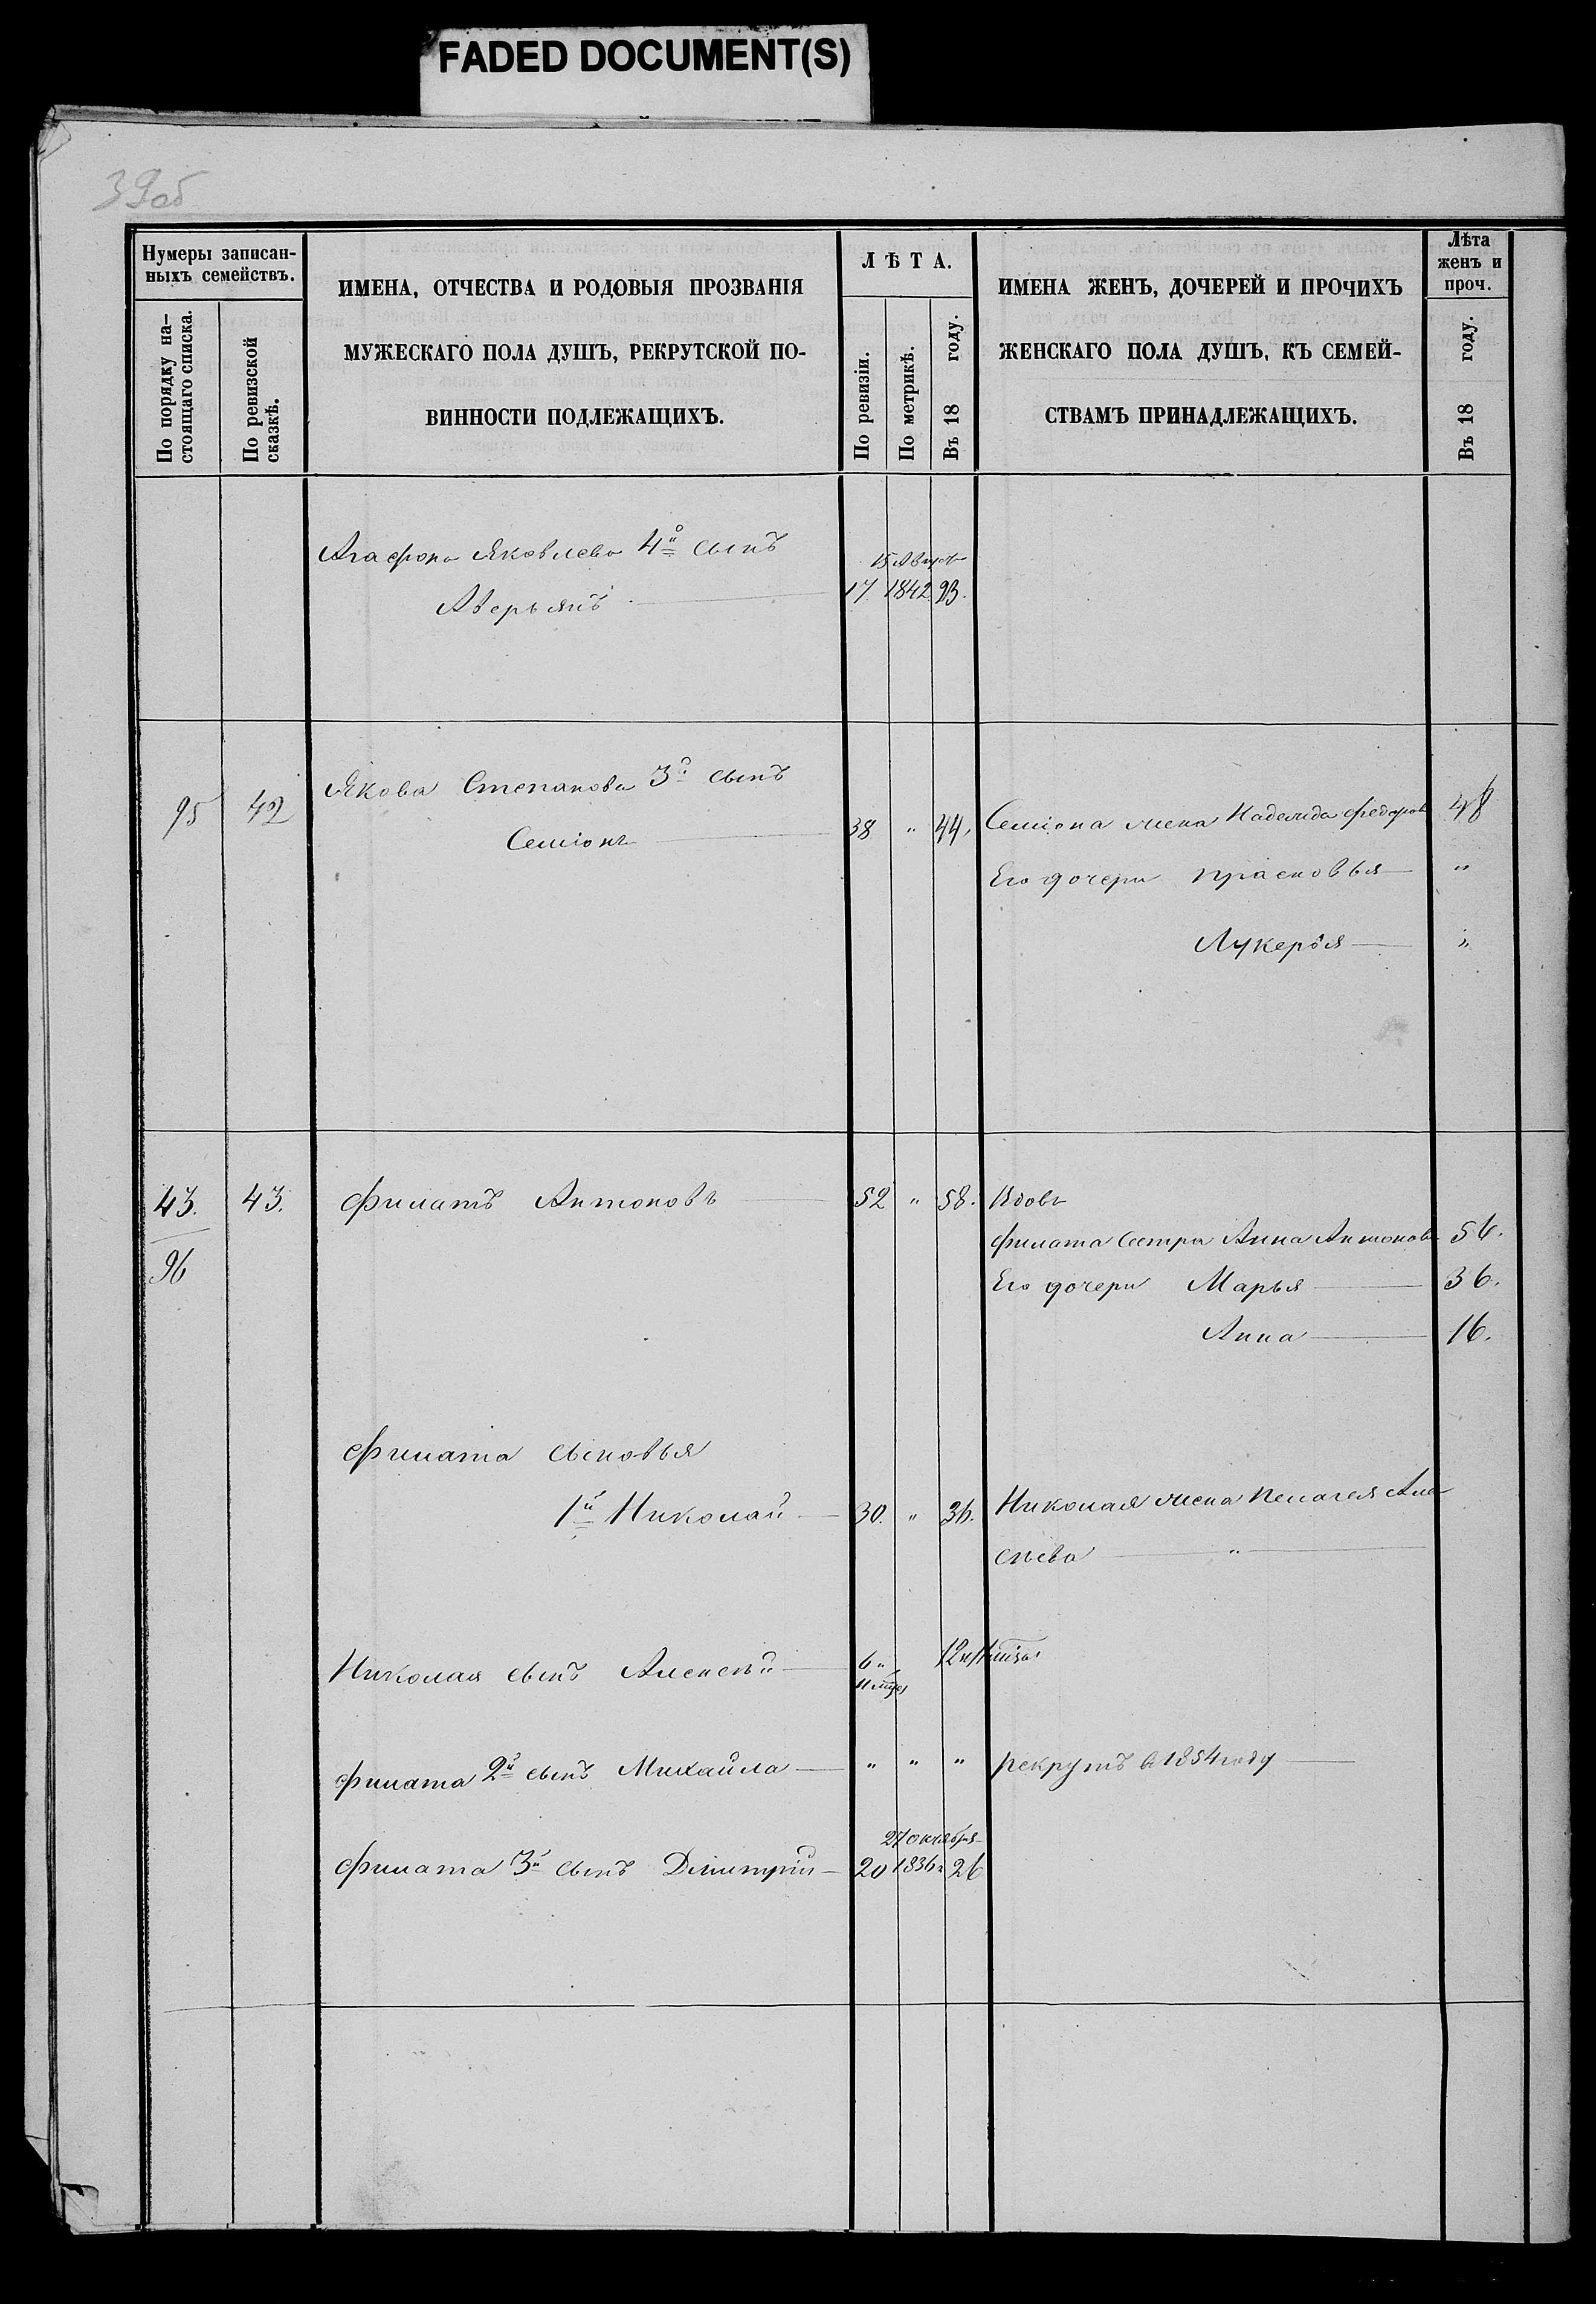 FADED DOCUMENT(S)
39об
Нумеры записан-
ныхъ семействъ.
По порядку на-
стоящаго списка.
По ревизской
сказкѣ.
ИМЕНА, ОТЧЕСТВА И РОДОВЫЯ ПРОЗВАНІЯ
МУЖЕСКАГО ПОЛА ДУШЪ, РЕКРУТСКОЙ ПО-
ВИННОСТИ ПОДЛЕЖАЩИХЪ.
ЛѢТА.
По ревизіи.
По метрикѣ.
Въ 18 году.
ИМЕНА ЖЕНЪ, ДОЧЕРЕЙ И ПРОЧИХЪ
ЖЕНСКАГО ПОЛА ДУШЪ, КЪ СЕМЕЙ-
СТВАМЪ ПРИНАДЛЕЖАЩИХЪ.
Лѣта
женъ и
проч.
Въ 18 году.
Агафона Яковлева 4й сынъ
15 Август
Аверьянъ 17. 1842 23.
Якова Степанова 3й сынъ
95 42 Семіонъ 38 " 44. Семіона жена Надежда Федоров 48
Его дочери Прасковья "
Лукерья "
43. 43. Филатъ Антоновъ 52 " 58. Вдовъ
Филата сестра Анна Антонов 56.
96 Его дочери Марья 36.
Анна 16.
Филата сыновья
1й Николай 30. " 36. Николая жена Пелагея Але
сѣева "
Николая сынъ Алексѣй 6 "
Филата 2й сынъ Михайла " " " рекрутъ в 1854 году
27 октября
Филата 3й сынъ Димитрій 20 1836 26